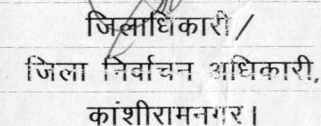 जिलाधिकारी/
जिला निर्वाचन अधिकारी,
कांशीरामनगर।